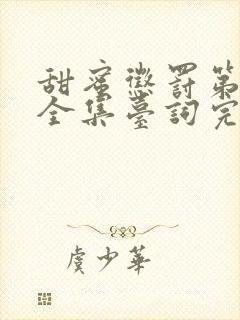 甜蜜懲罰第
全集臺詞完
虞少華